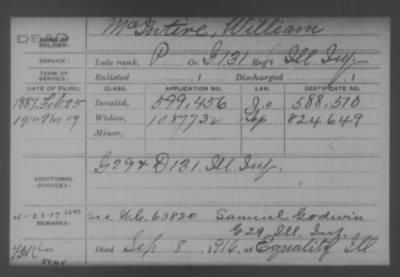 DEAD
McIntire, William
NAME OF SOLDIER:
SERVICE: Late rank, P. Co. G. 131 Reg't Ill. Inf.
TERM OF SERVICE: Enlisted , 1 Discharged , 1
DATE OF FILING. CLASS. APPLICATION NO. LAW. CERTIFICATE NO.
1887 Feb. 25 Invalid, 599,456 588,510
1916 Nov 29 Widow, 1087732 824649
Minor,
ADDITIONAL SERVICES: G 29 & D 131 Ill. Inf.
REMARKS: See W.C. 63820 Samuel Godwin
G 29 Ill. Inf.
Died Sep 8, 1916, at Equality Ill